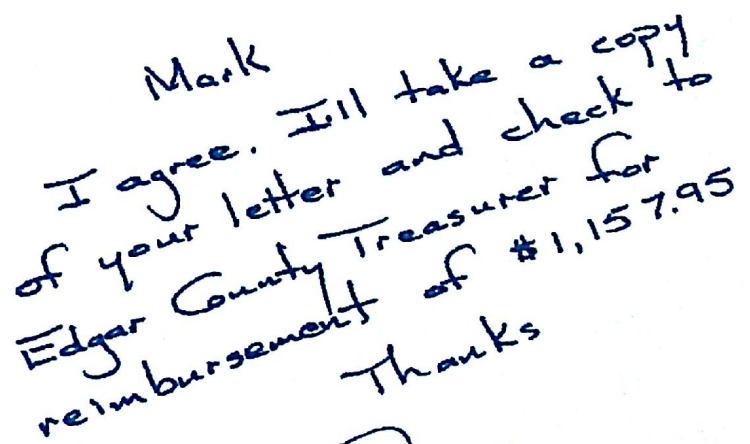 Mark
I agree. I'll take a copy
of your letter and check to
Edgar County Treasurer for
reimbursement of $1,157.95
Thanks